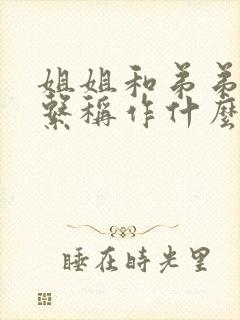 姐姐和弟弟
繫稱作什麼
睡在時光里